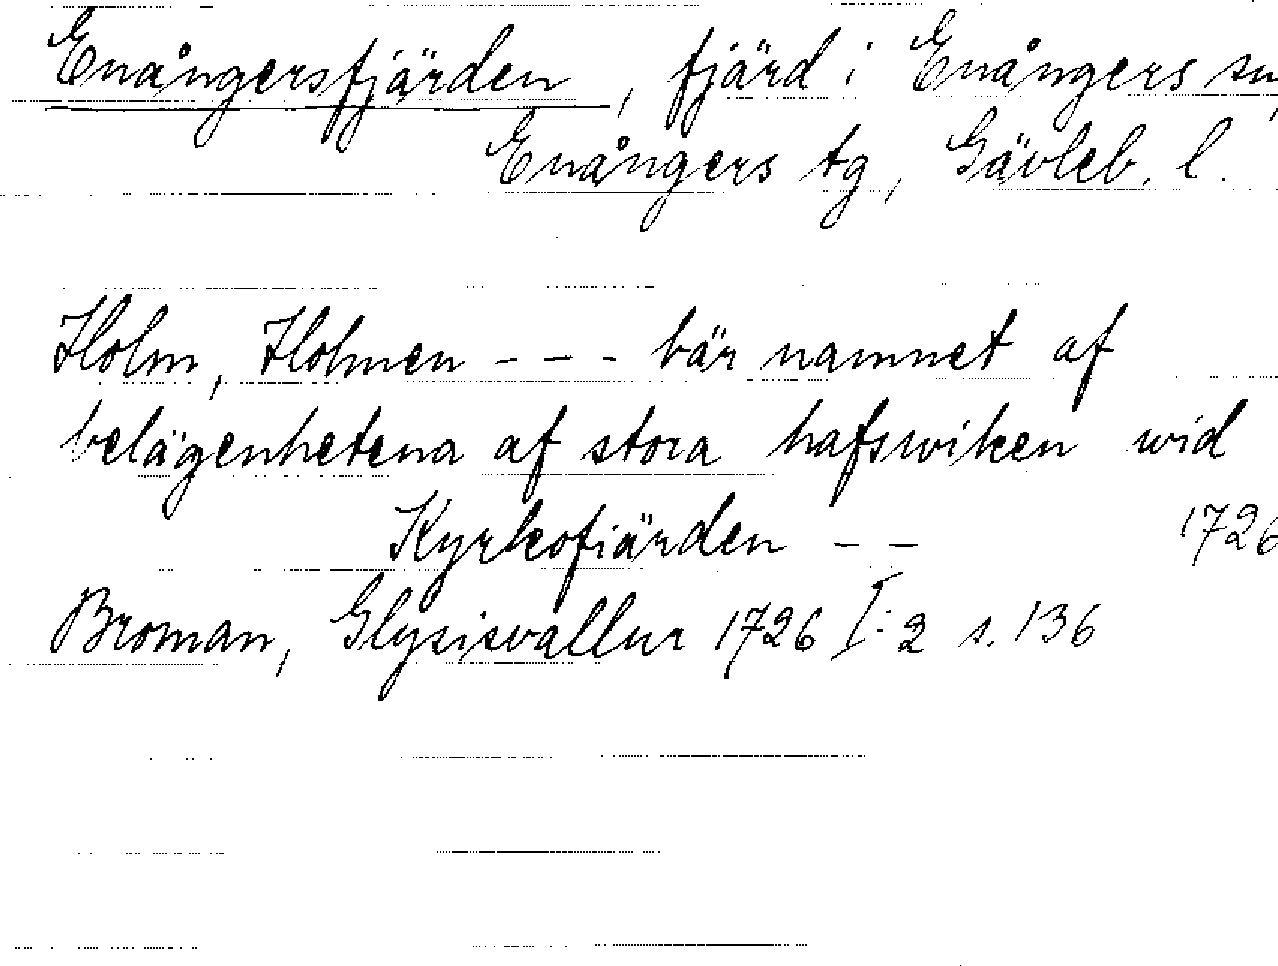 Enångersfjärden, fjärd i Enångers sn,
Enångers tg, Gävleb. l.
Holm, Holmen - - - bär namnet af
belägenhetena af stora hafswiken wid
Kyrkofiärden - - 1726
Broman, Glysisvallur 1726 I:2 s. 136